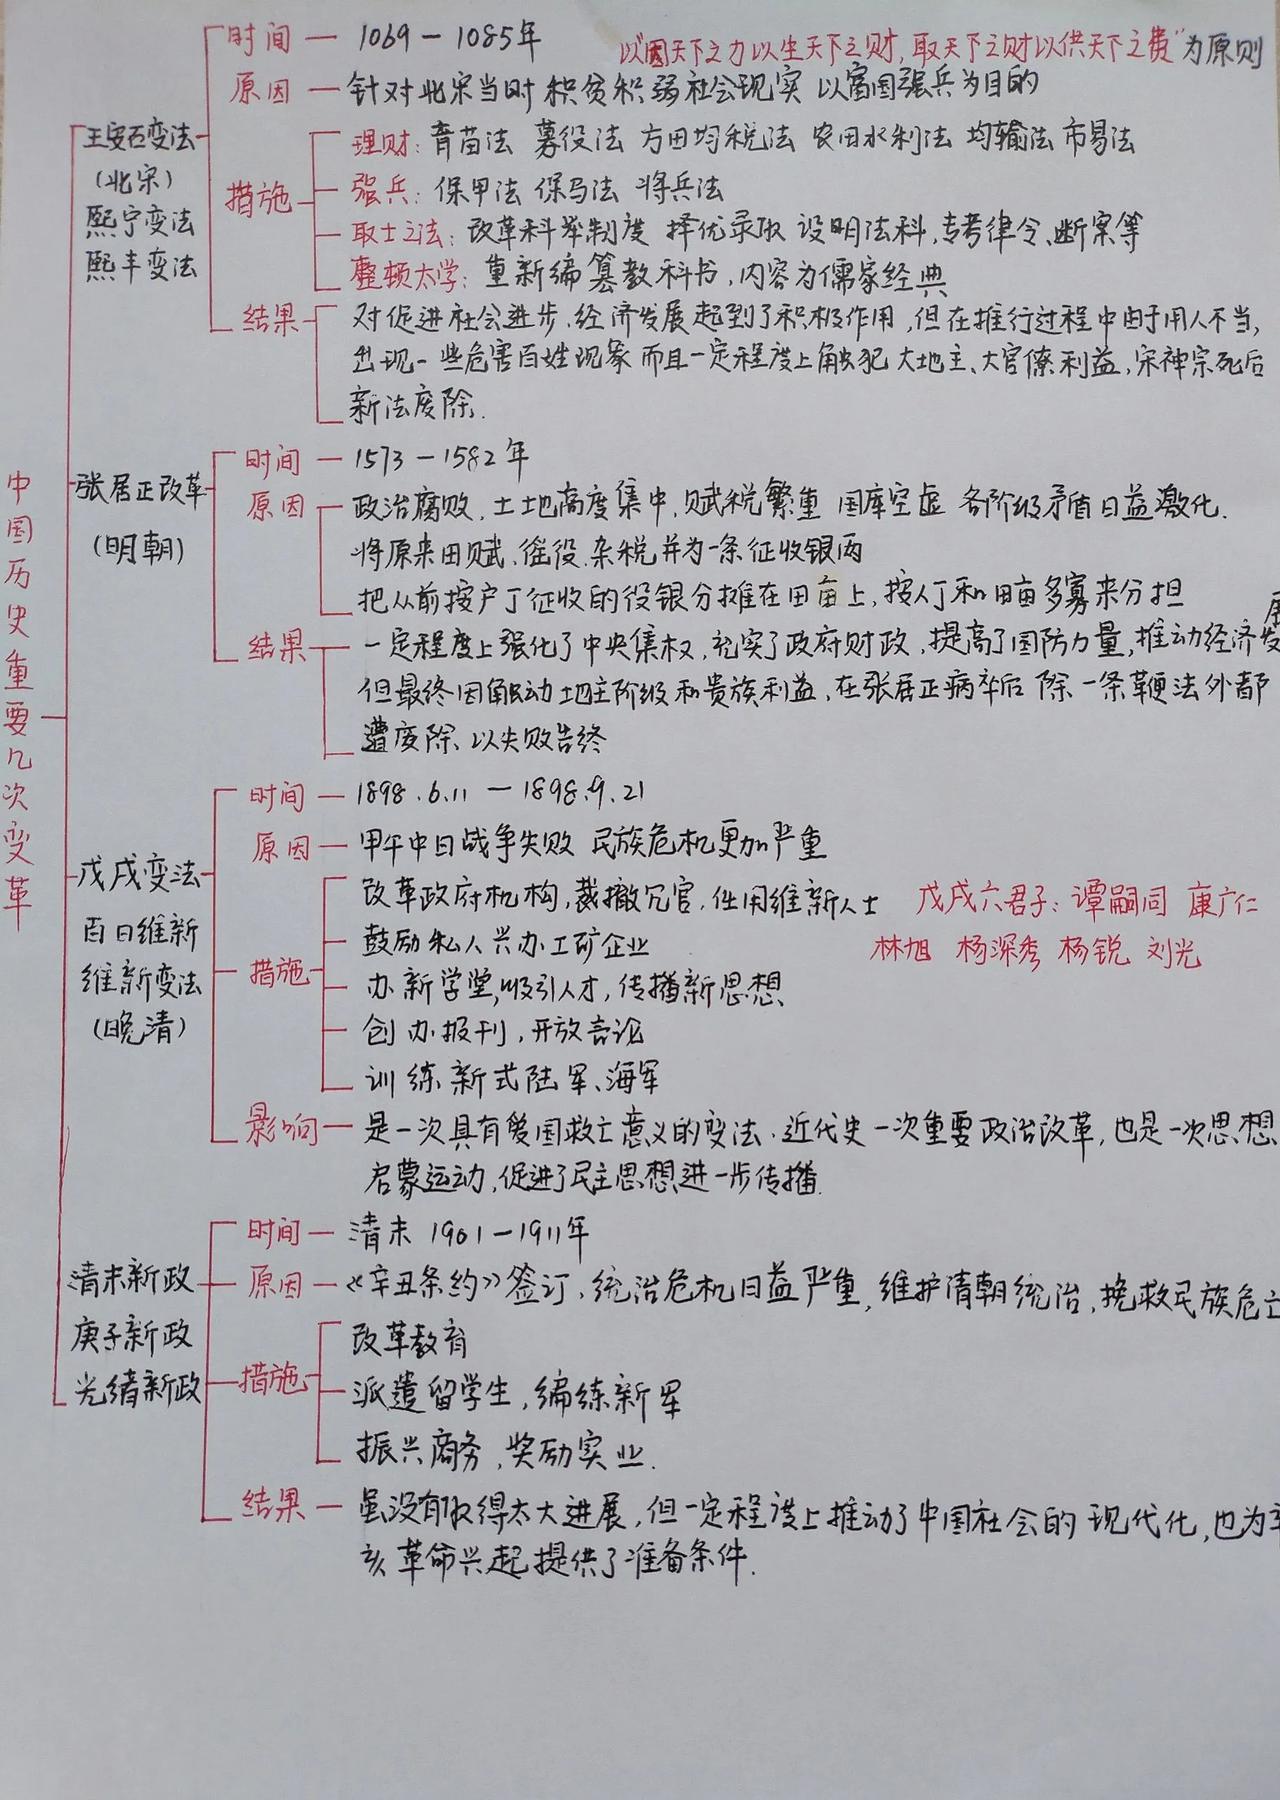 中国历史重要几次变革
王安石变法
(北宋)
熙宁变法
熙丰变法
时间 — 1069 — 1085年
以"因天下之力以生天下之财,取天下之财以供天下之费"为原则
原因 — 针对北宋当时积贫积弱社会现实 以富国强兵为目的
措施
理财: 青苗法 募役法 方田均税法 农田水利法 均输法 市易法
强兵: 保甲法 保马法 将兵法
取士之法: 改革科举制度 择优录取 设明法科,专考律令、断案等
整顿太学: 重新编篡教科书,内容为儒家经典
结果
对促进社会进步、经济发展起到了积极作用,但在推行过程中由于用人不当,
出现一些危害百姓现象 而且一定程度上触犯大地主、大官僚利益,宋神宗死后
新法废除.
张居正改革
(明朝)
时间 — 1573 — 1582年
原因
政治腐败,土地高度集中,赋税繁重 国库空虚 各阶级矛盾日益激化.
将原来田赋、徭役、杂税并为一条征收银两
把从前按户丁征收的役银分摊在田亩上,按人丁和田亩多寡来分担
结果
一定程度上强化了中央集权,充实了政府财政,提高了国防力量,推动经济发展
但最终因触动地主阶级和贵族利益,在张居正病卒后 除一条鞭法外都
遭废除、以失败告终
戊戌变法
百日维新
维新变法
(晚清)
时间 — 1898.6.11 — 1898.9.21
原因 — 甲午中日战争失败 民族危机更加严重
措施
改革政府机构,裁撤冗官,任用维新人士
戊戌六君子: 谭嗣同 康广仁
林旭 杨深秀 杨锐 刘光
鼓励私人兴办工矿企业
办新学堂,吸引人才,传播新思想
创办报刊,开放言论
训练新式陆军、海军
影响 — 是一次具有爱国救亡意义的变法.近代史一次重要政治改革,也是一次思想
启蒙运动,促进了民主思想进一步传播.
清末新政
庚子新政
光绪新政
时间 — 清末 1901—1911年
原因 — 《辛丑条约》签订,统治危机日益严重,维护清朝统治,挽救民族危亡
措施
改革教育
派遣留学生,编练新军
振兴商务,奖励实业.
结果 — 虽没有取得太大进展,但一定程度上推动了中国社会的现代化,也为辛
亥革命兴起提供了准备条件.